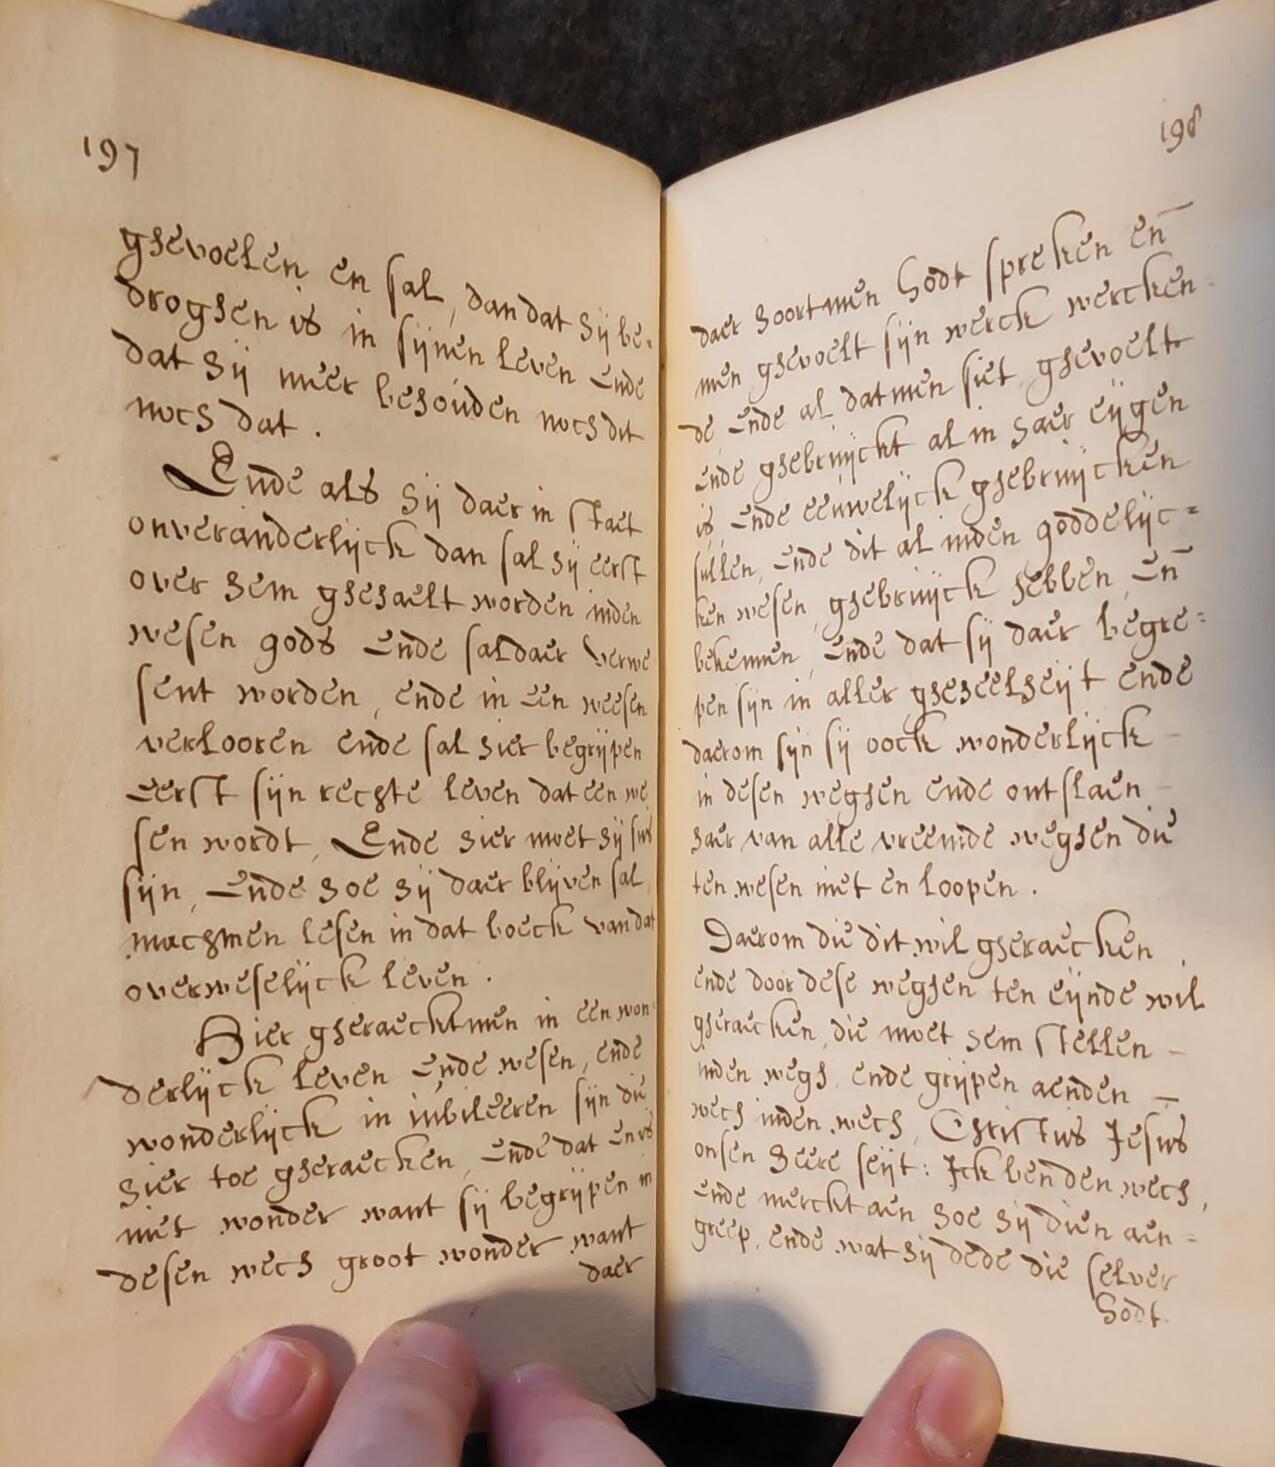 197
ghevoelen en sal, dan dat hij be-
droghen is in sijnen leven ende
dat hij meer behouden noch dit
noch dat.
Ende als hij daer in staet
onveranderlijck dan sal hij eerst
over hem ghehaelt worden inden
wesen gods ende saldaer verwe
sent worden, ende in een weesen
verlooren ende sal hier begrijpen
eerst sijn rechte leven dat een we
sen wordt, Ende hier moet hij sus
sijn, ende hoe hij daer blijven sal,
machmen lesen in dat boeck van dat
overweselijck leven.
Hier gheraecktmen in een won
derlijck leven ende wesen, ende
wonderlijck in iubileeren sijn die
hier toe gheraecken, ende dat en is
niet wonder want sij begrijpen in
desen wech groot wonder want
daer
198
daer hoortmen Godt spreken en̄
men ghevoelt sijn werck wercken-
de ende al datmen siet, ghevoelt
ende ghebruijckt al in haer eijgen
is, ende eeuwelijck ghebruijcken
sullen, ende dit al inden goddelijc=
ken wesen, ghebruijck hebben, en̄
bekennen, ende dat sij daer begre=
pen sijn in aller gheheelheijt ende
daerom sijn sij oock wonderlijck
in desen weghen ende ontslaen
haer van alle vreemde weghen die
ten wesen niet en loopen.
Daerom die dit wil gheraecken,
ende door dese weghen ten eijnde wil
gheraecken, die moet hem stellen
inden wegh, ende grijpen aenden
wech inden wech, Christus Jesus
onsen heere seijt: Ick ben den wech,
ende merckt aen hoe hij dien aen=
greep, ende wat hij dede die selver
Godt